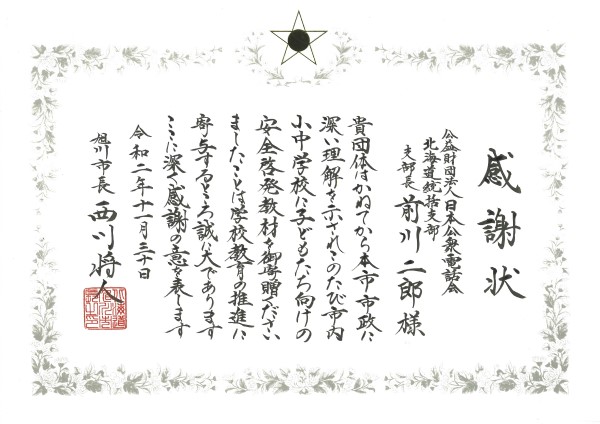 感謝状
公益財団法人日本公衆電話会
北海道統括支部
支部長 前川二郎様
貴団体はかねてから本市市政に
深い理解を示されこのたび市内
小中学校に子どもたち向けの
安全啓発教材を御寄贈ください
ましたことは学校教育の推進に
寄与するところ誠に大であります
ここに深く感謝の意を表します
令和二年十一月三十日
旭川市長 西川将人